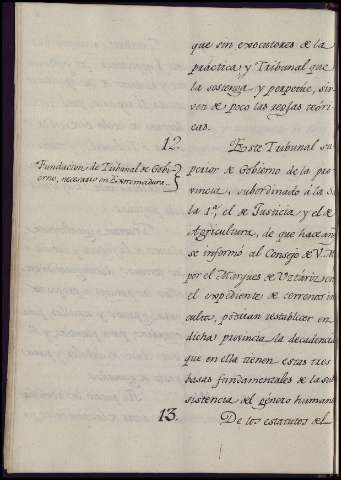 que sin executores de la
práctica y Tribunal que
la sostenga y perpetúe, sir-
ven de poco las reglas teóri-
cas.
12.
Fundacion de Tribunal de Gobi-
erno, necesario en Extremadura.
Este Tribunal su-
perior de Gobierno de la pro
vincia, subordinado á la Sa
la 1ª, el de Justicia y el de
Agricultura, de que hace años
se informó al Consejo de V. M.
por el Marques de Uztáriz en
el expediente de terrenos in
cultos, podrian restablecer en
dicha provincia la decadencia
que en ella tienen estas tres
basas fundamentales de la sub
sistencia del género humano
13.
De los estatutos del